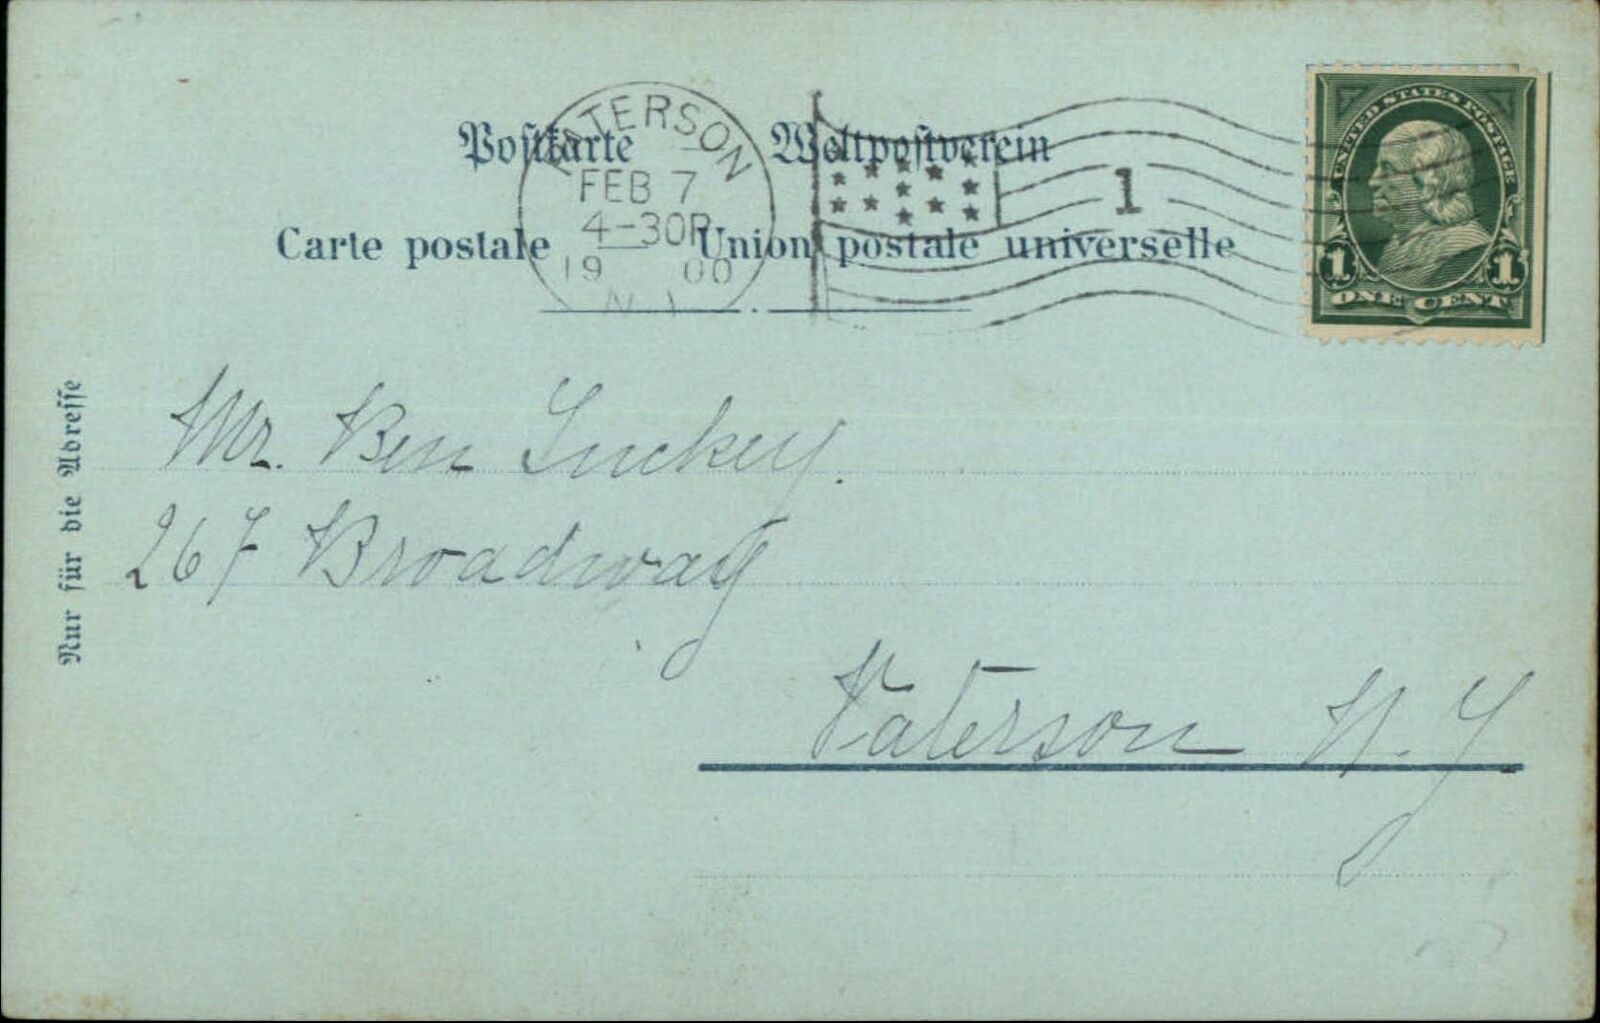 Postkarte Weltpostverein
Carte postale Union postale universelle
PATERSON
FEB 7
4-30P
1900
N.J.
1
UNITED STATES POSTAGE
1 1
ONE CENT
Nur für die Adresse
Mr. Ben Luckey.
267 Broadway
Paterson N. J.